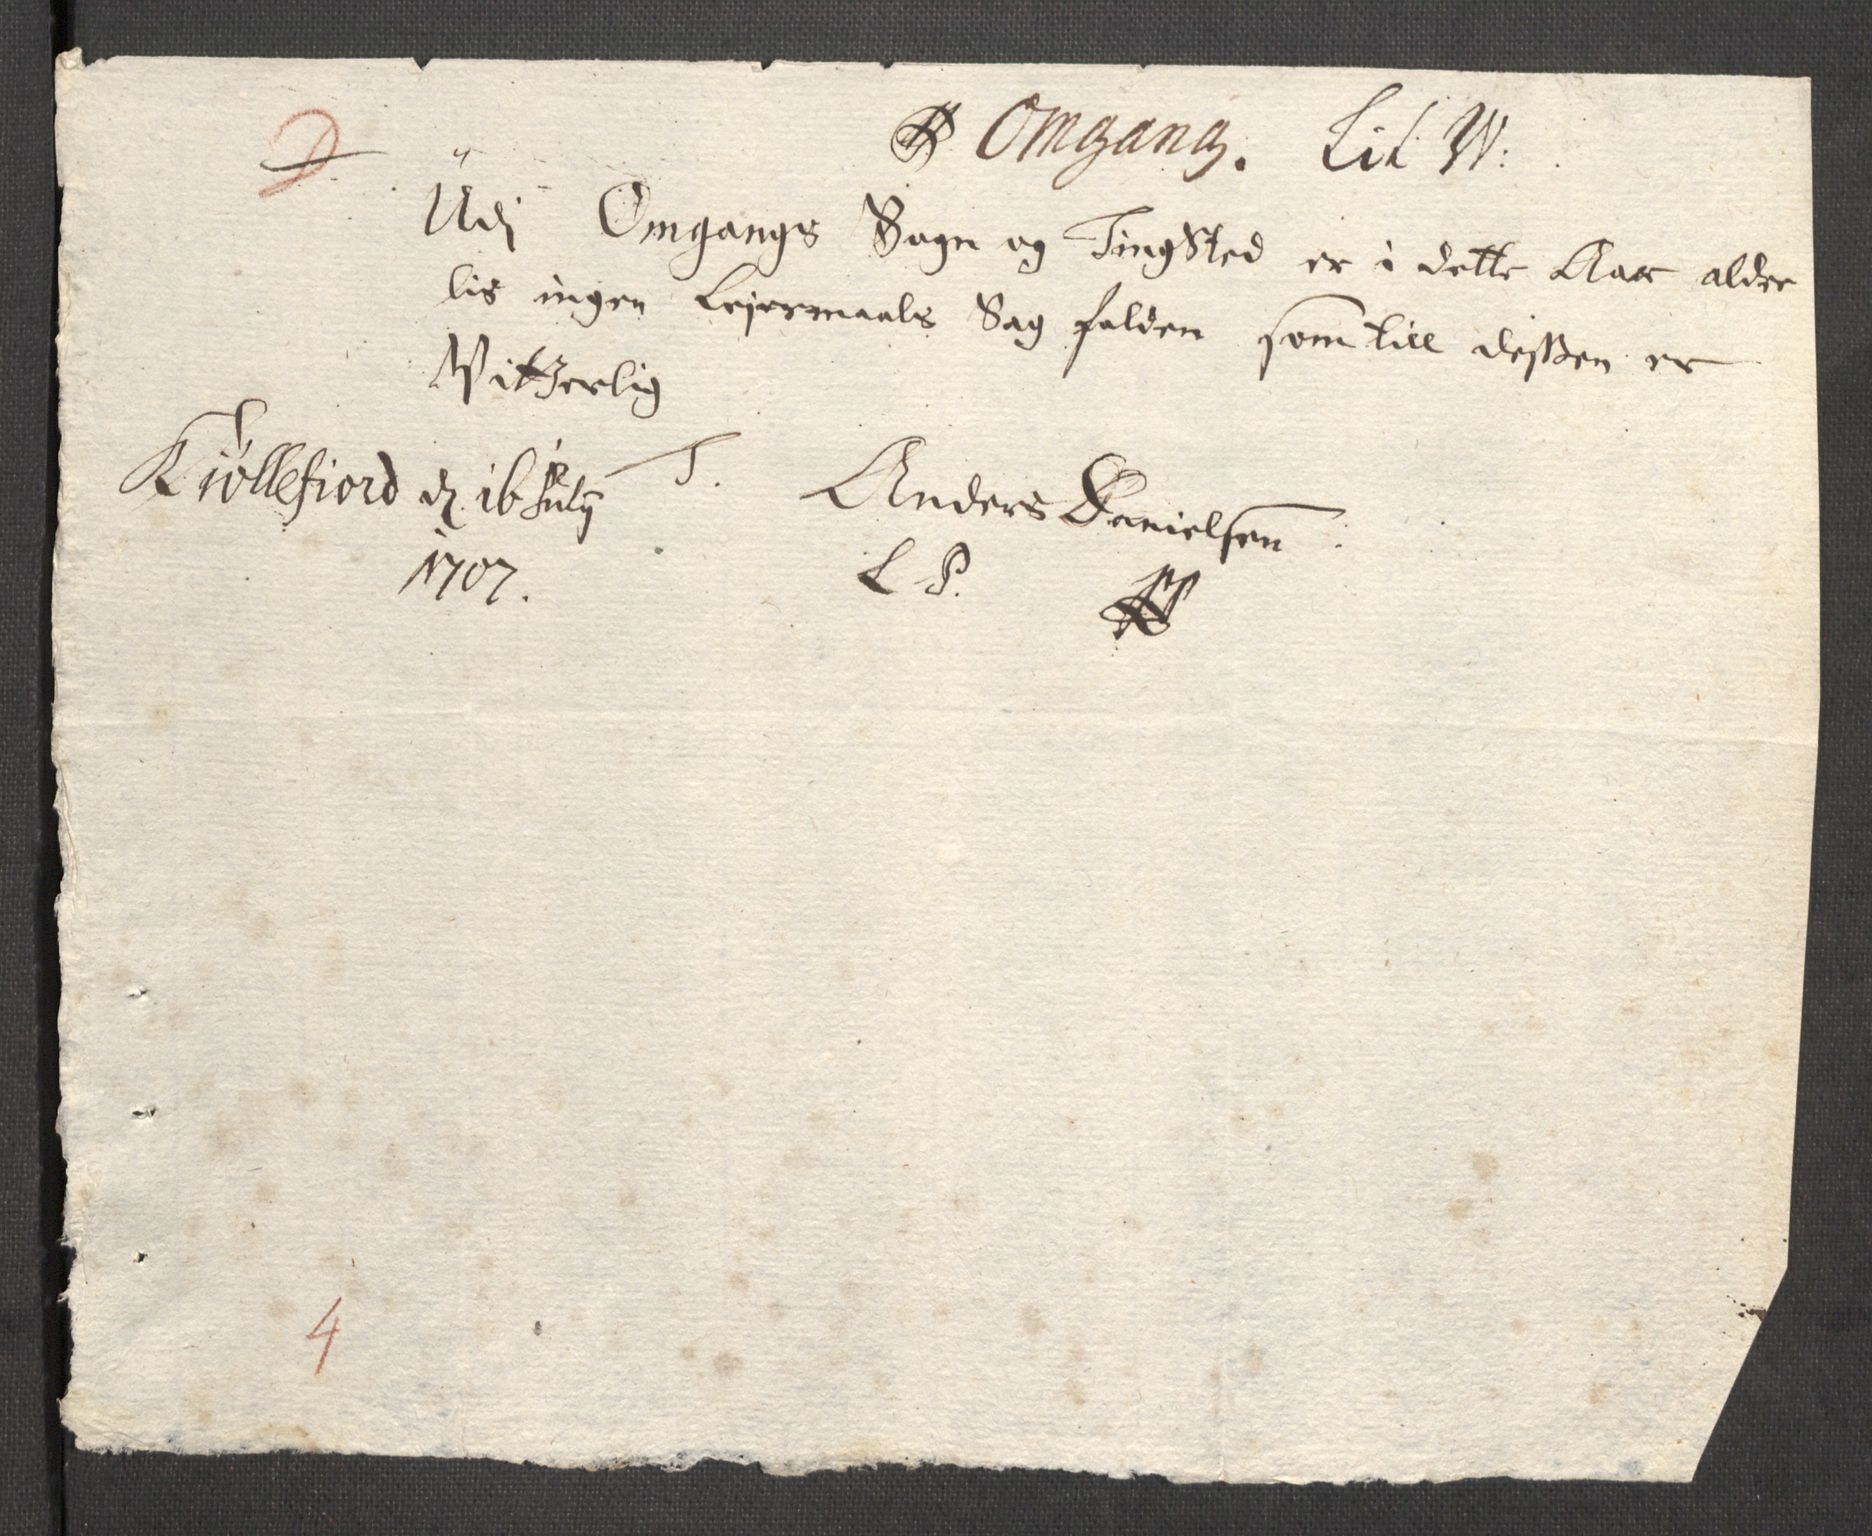 Omgang. Lit W:
D
Udj Omgangs Sogn og TingSted er i dette Aar alder
lis ingen Lejermaals Sag falden som till dessen er
Vitterlig
Kiøllefiord d. 16 July
1707.
T. Anders Danielsen
L S.
4